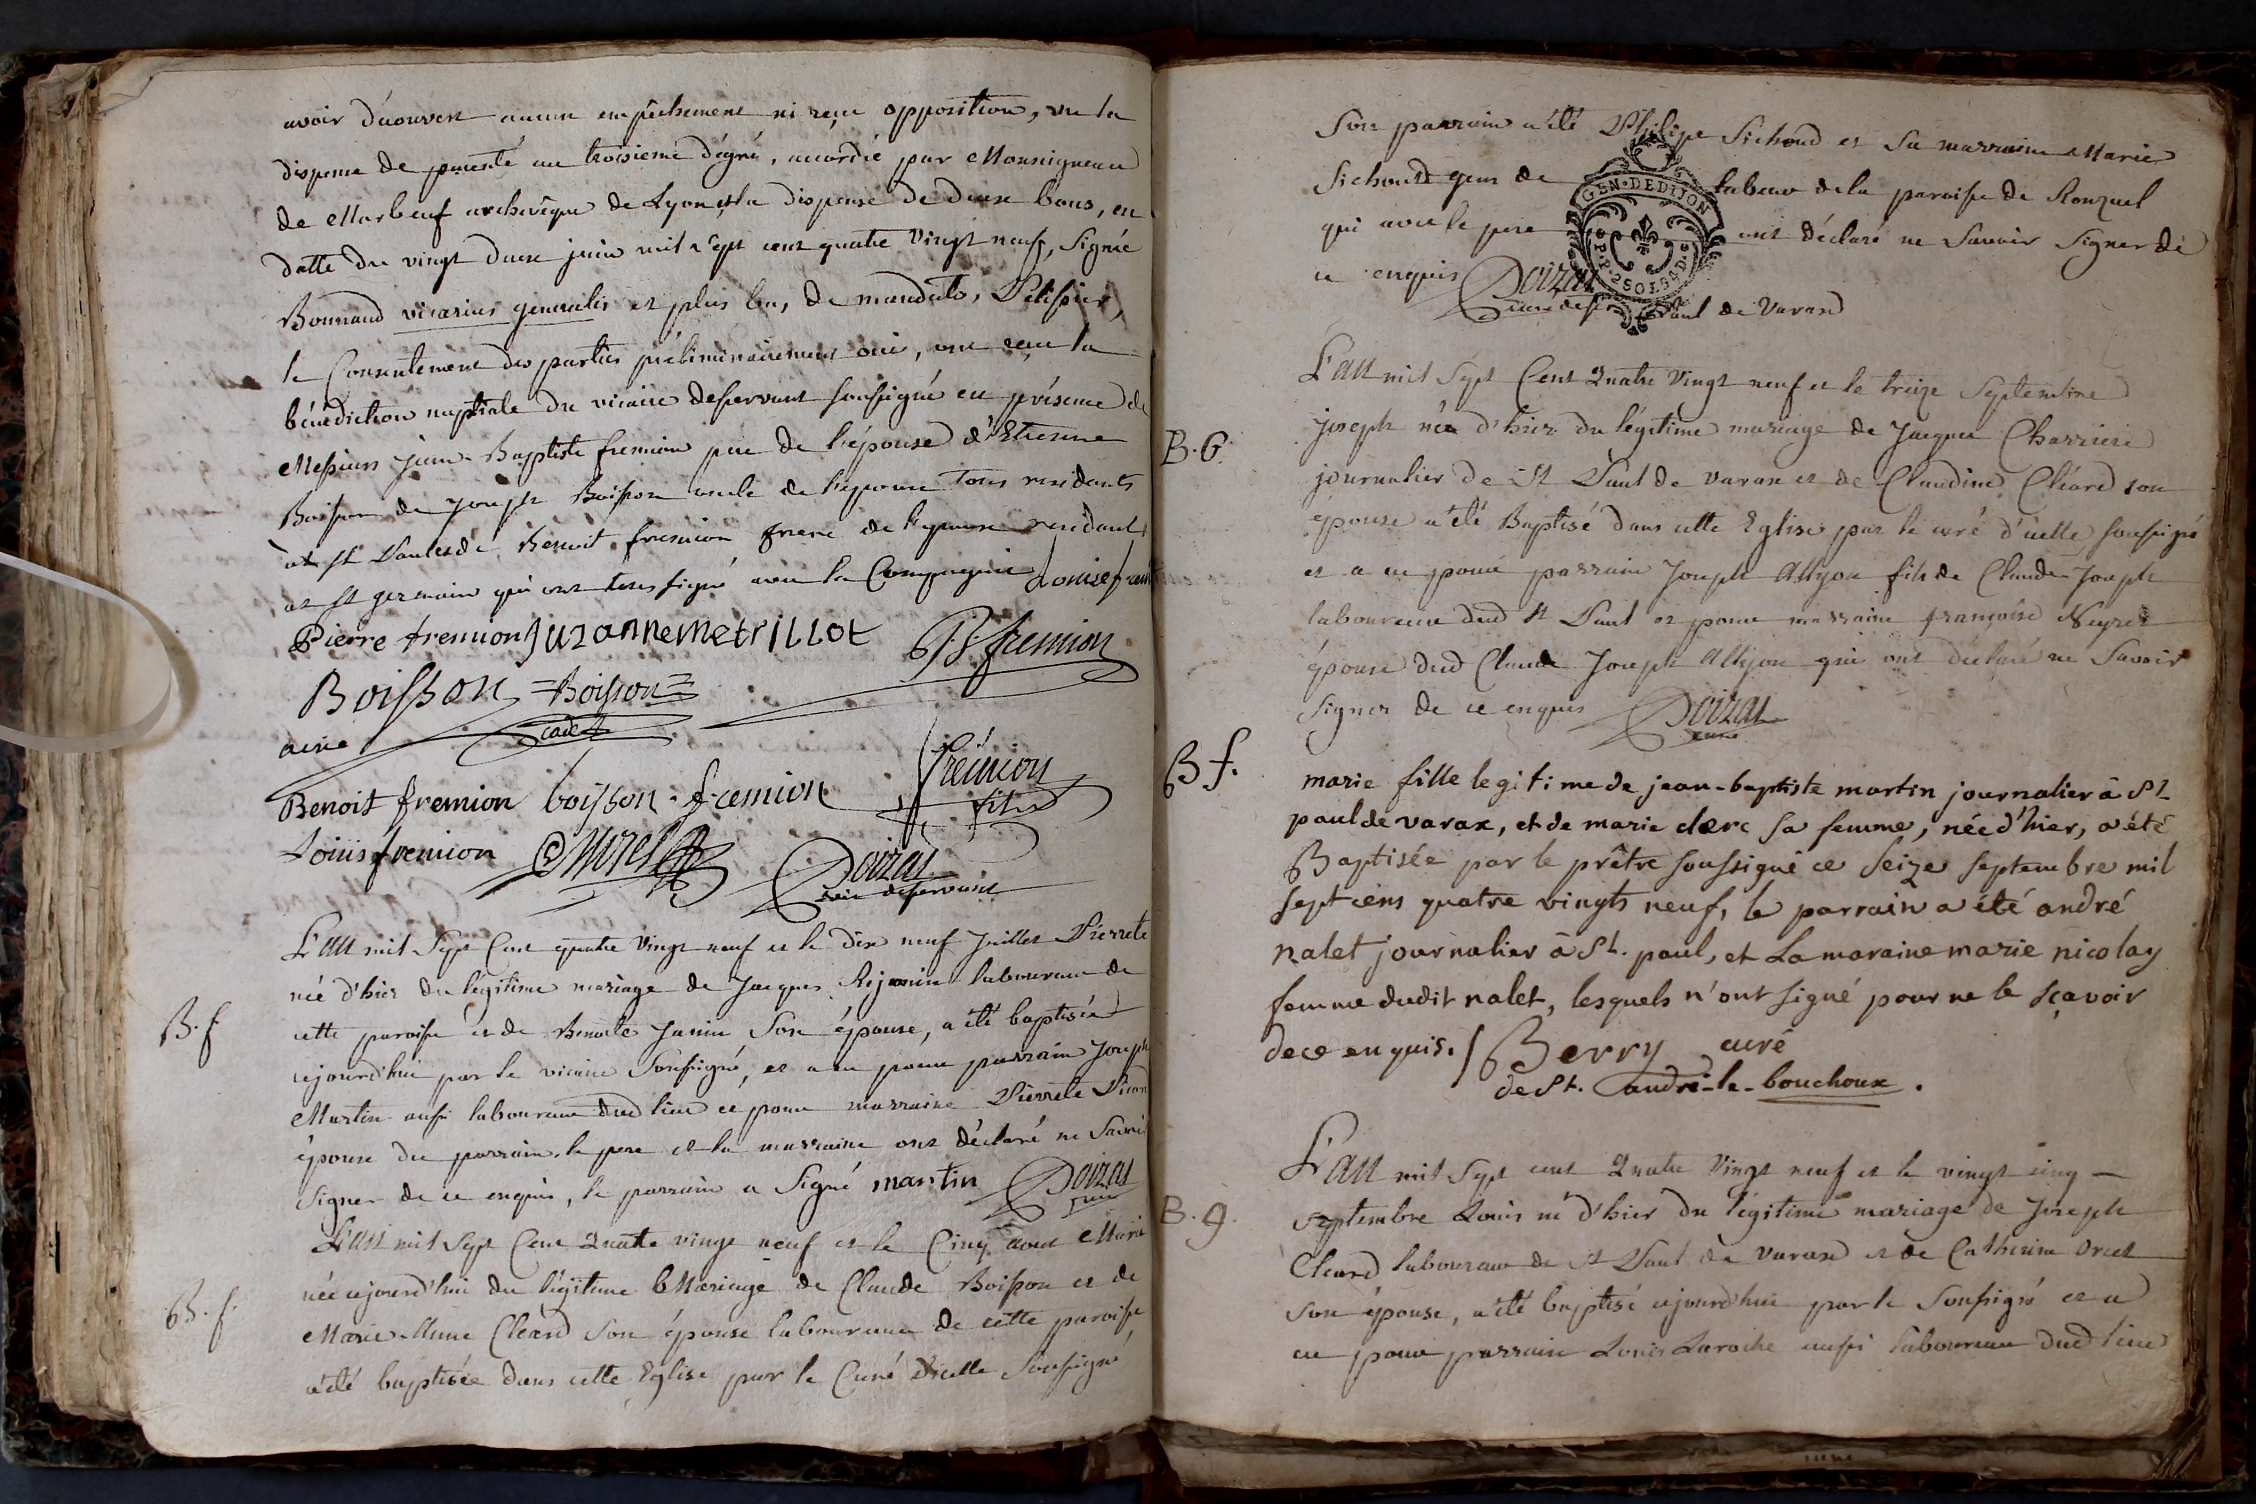 avoir découvert aucun empêchement ni reçu opposition, vu la
dispense de parenté au troisieme dégré, accordée par Monseigneur
de Marbeuf archevêque de Lyon et la dispense de deux bans, en
datte du vingt deux juin mil sept cent quatre vingt neuf, Signée
Bonnaud vicarius generalis et plus bas, de mandato,
le Consentement des parties préliminairement oui, ont reçu la
bénédiction nuptiale du vicaire desservant soussigné en présence de
Messieurs Jean-Baptiste fremion pere de l'épouse d'Etienne
Boisson de Joseph Boisson oncle de l'epouse tous residants
à St Paul et de Benoit fremion frere de l'epouse residant
at St germain qui ont tous signé avec la Compagnie Louise frem
Pierre fremion Suzanne Metrillot P. f. fremion
Boisson =Boisson=
aine cadet
Benoit fremion boisson . fremion fremion
fils
Louis fremion Morel Doizat
vic desservant
L'an mil Sept Cent quatre vingt neuf et le dix neuf Juillet Pierrete
B. f
née d'hier du légitime mariage de Jacques Rejanin laboureur de
cette paroisse et de Benoite Janin Son épouse, a été baptisée
cejourd'hui par le vicaire Soussigné, et a eu pour parrain Joseph
Martin aussi laboureur dud lieu et pour marraine Pierrete
épouse du parrain. le pere et la marraine ont déclaré ne Savoir
Signer de ce enquis, le parrain a Signé martin Doizat
L'an mil Sept Cent Quatre vingt neuf et le Cinq aout Marie
B. f.
née cejourd'hui du légitime Mariage de Claude Boisson et de
Marie-Anne Cleard Son épouse laboureur de cette paroisse
a été baptisée dans cette Eglise par le Curé d'icelle Soussigné
Son parrain a été Philipe Sichoud et Sa marraine Marie
Sichoud gens de labeur de la paroise de Ronzuel
qui avec le pere ont déclaré ne Savoir Signer de
ce enquis Doizat
curé de St Paul de Varax
GEN. DE DIJON
P.P. 2 SOLS 9 D.
L'an mil Sept Cent Quatre Vingt neuf et le treize Septembre
B. G.
joseph né d'hier du légitime mariage de Jacque Charriere
journalier de St Paul de varax et de Claudine Cléard son
épouse a été Baptisé dans cette Eglise par le curé d'icelle soussigné
et a eu pour parrain Joseph Allyon fils de Claude-Joseph
laboureur dud St Paul et pour marraine françoise Neyret
épouse dud Claude Joseph Allyon qui ont déclaré ne Savoir
Signer de ce enquis Doizat
curé
B f.
marie fille legitime de jean-baptiste martin journalier à St
paul de varax, et de marie clerc sa femme, née d'hier, a été
Baptisée par le prêtre soussigné ce seize septembre mil
sept cens quatre vingts neuf, le parrain a été andré
nalet journalier à St. paul, et La maraine marie nicolay
femme dudit nalet, lesquels n'ont signé pour ne le sçavoir
de ce enquis. / Berry curé
de St. andré-le-bouchoux.
L'an mil Sept cent Quatre Vingt neuf et le vingt cinq
B. g.
septembre Louis né d'hier du légitime mariage de Joseph
Cleard laboureur de St Paul de Varax et de Catherine
Son épouse, a été baptisé cejourd'hui par le Soussigné et a
eu pour parrain Louis Laroche aussi laboureur dud lieu